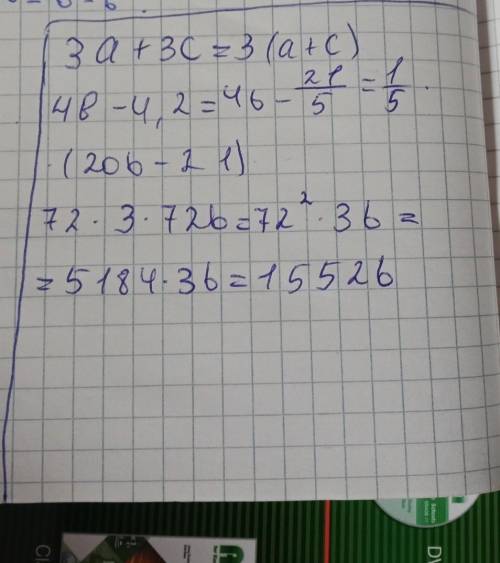 3a + 3c = 3(a+c)
4b - 4,2 = 4b - 21/5 = 1/5 ·
· (20b - 21)
72 · 3 · 72b = 72² · 3b =
= 5184 · 3b = 15526